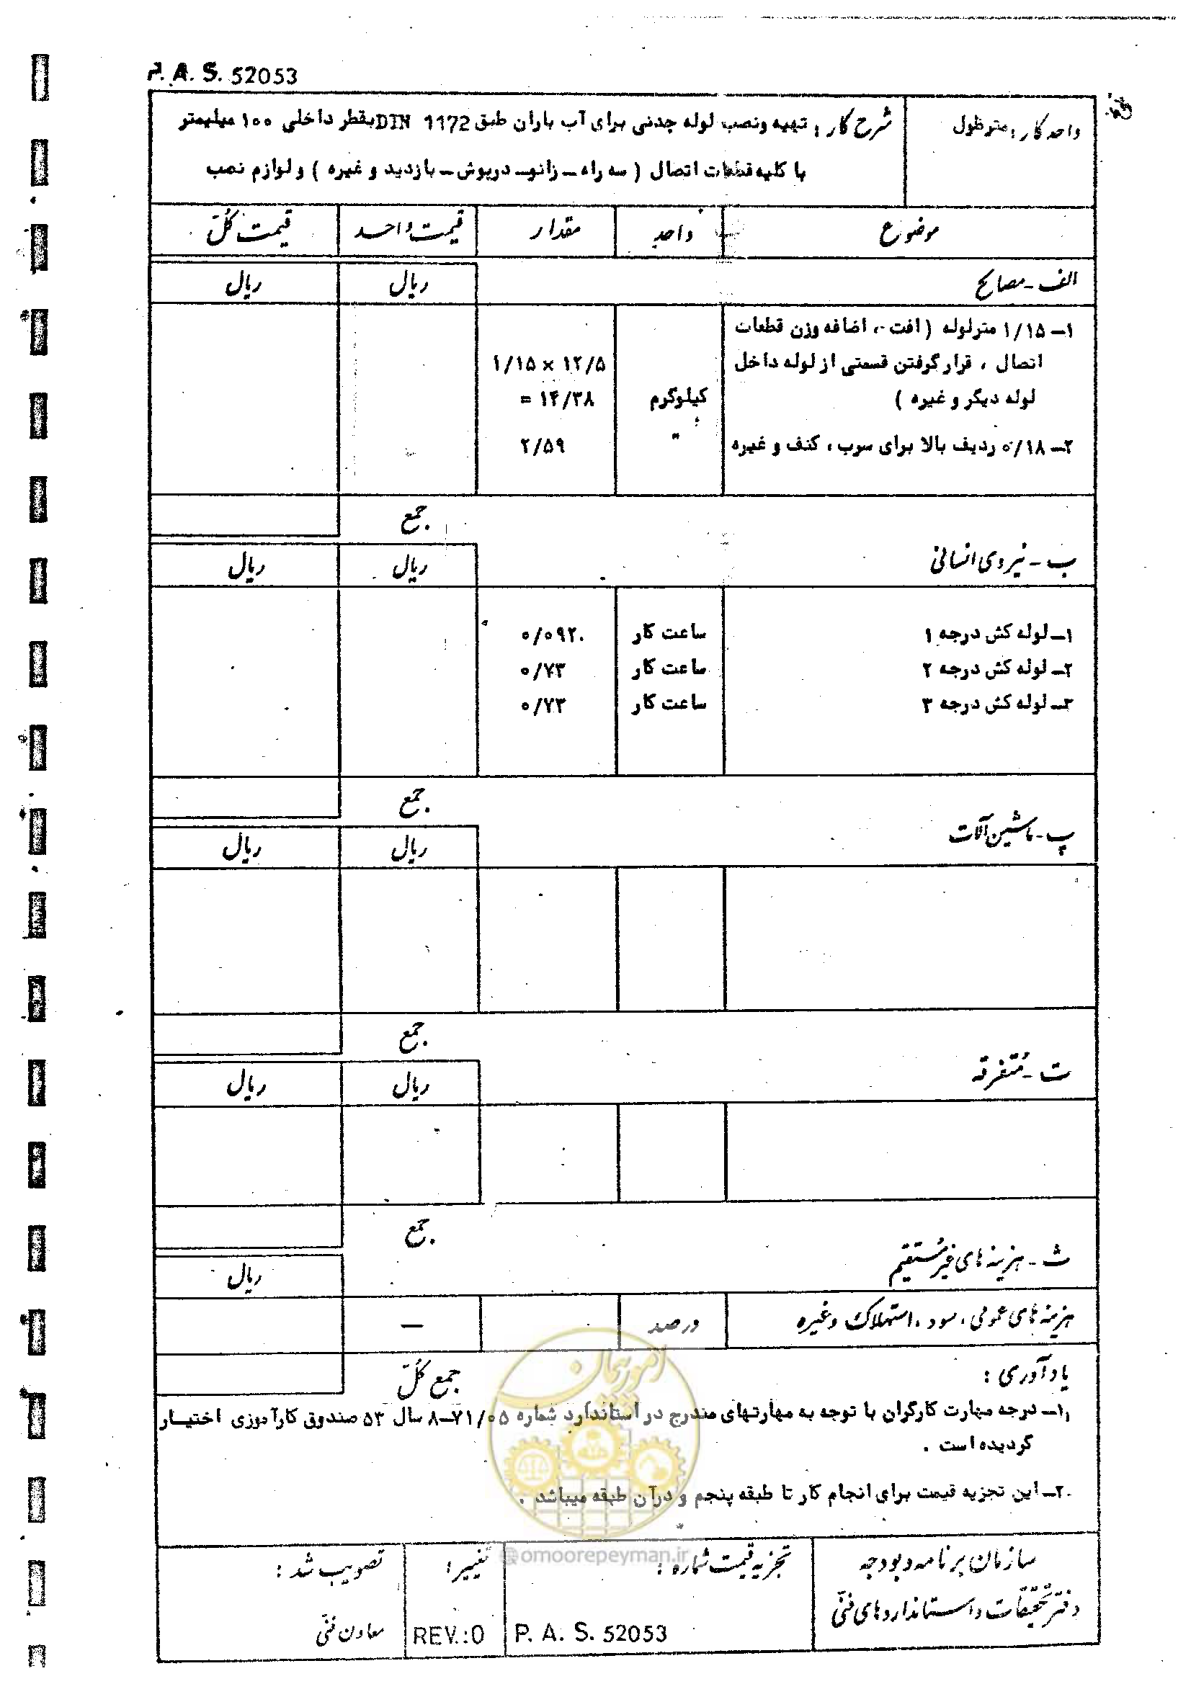 P. A. S. 52053
واحد کار : مترطول
شرح کار : تهیه ونصب لوله چدنی برای آب باران طبق DIN 1172 بقطر داخلی ۱۰۰ میلیمتر
با کلیه قطعات اتصال ( سه راه ـ زانو ـ درپوش ـ بازدید و غیره ) و لوازم نصب
موضوع واحد مقدار قیمت واحد قیمت کلّ
الف - مصالح ریال ریال
۱ـ ۱/۱۵ مترلوله ( افت ، اضافه وزن قطعات
اتصال ، قرار گرفتن قسمتی از لوله داخل ۱/۱۵ × ۱۲/۵
لوله دیگر و غیره ) کیلوگرم = ۱۴/۳۸
۲ـ ۰/۱۸ ردیف بالا برای سرب ، کنف و غیره " ۲/۵۹
جمع
ب - نیروی انسانی ریال ریال
۱ـ لوله کش درجه ۱ ساعت کار ۰/۰۹۲
۲ـ لوله کش درجه ۲ ساعت کار ۰/۷۳
۳ـ لوله کش درجه ۳ ساعت کار ۰/۷۳
جمع
پ - ماشین آلات ریال ریال
جمع
ت - مُتفرقه ریال ریال
جمع
ث - هزینه های غیرمُستقیم ریال
هزینه های عمومی ، سود ، استهلاک وغیره درصد —
جمع کلّ
یادآوری :
۱ـ درجه مهارت کارگران با توجه به مهارتهای مندرج در استاندارد شماره ۸ـ۷۱/۰۵ سال ۵۳ صندوق کارآموزی اختیار
گردیده است .
۲ـ این تجزیه قیمت برای انجام کار تا طبقه پنجم و درآن طبقه میباشد .
امور پیمان
@omoorepeyman.ir
سازمان برنامه و بودجه
دفتر تحقیقات و استانداردهای فنّی
تجزیه قیمت شماره :
P. A. S. 52053
تغییر :
REV.:0
تصویب شد :
معاون فنّی